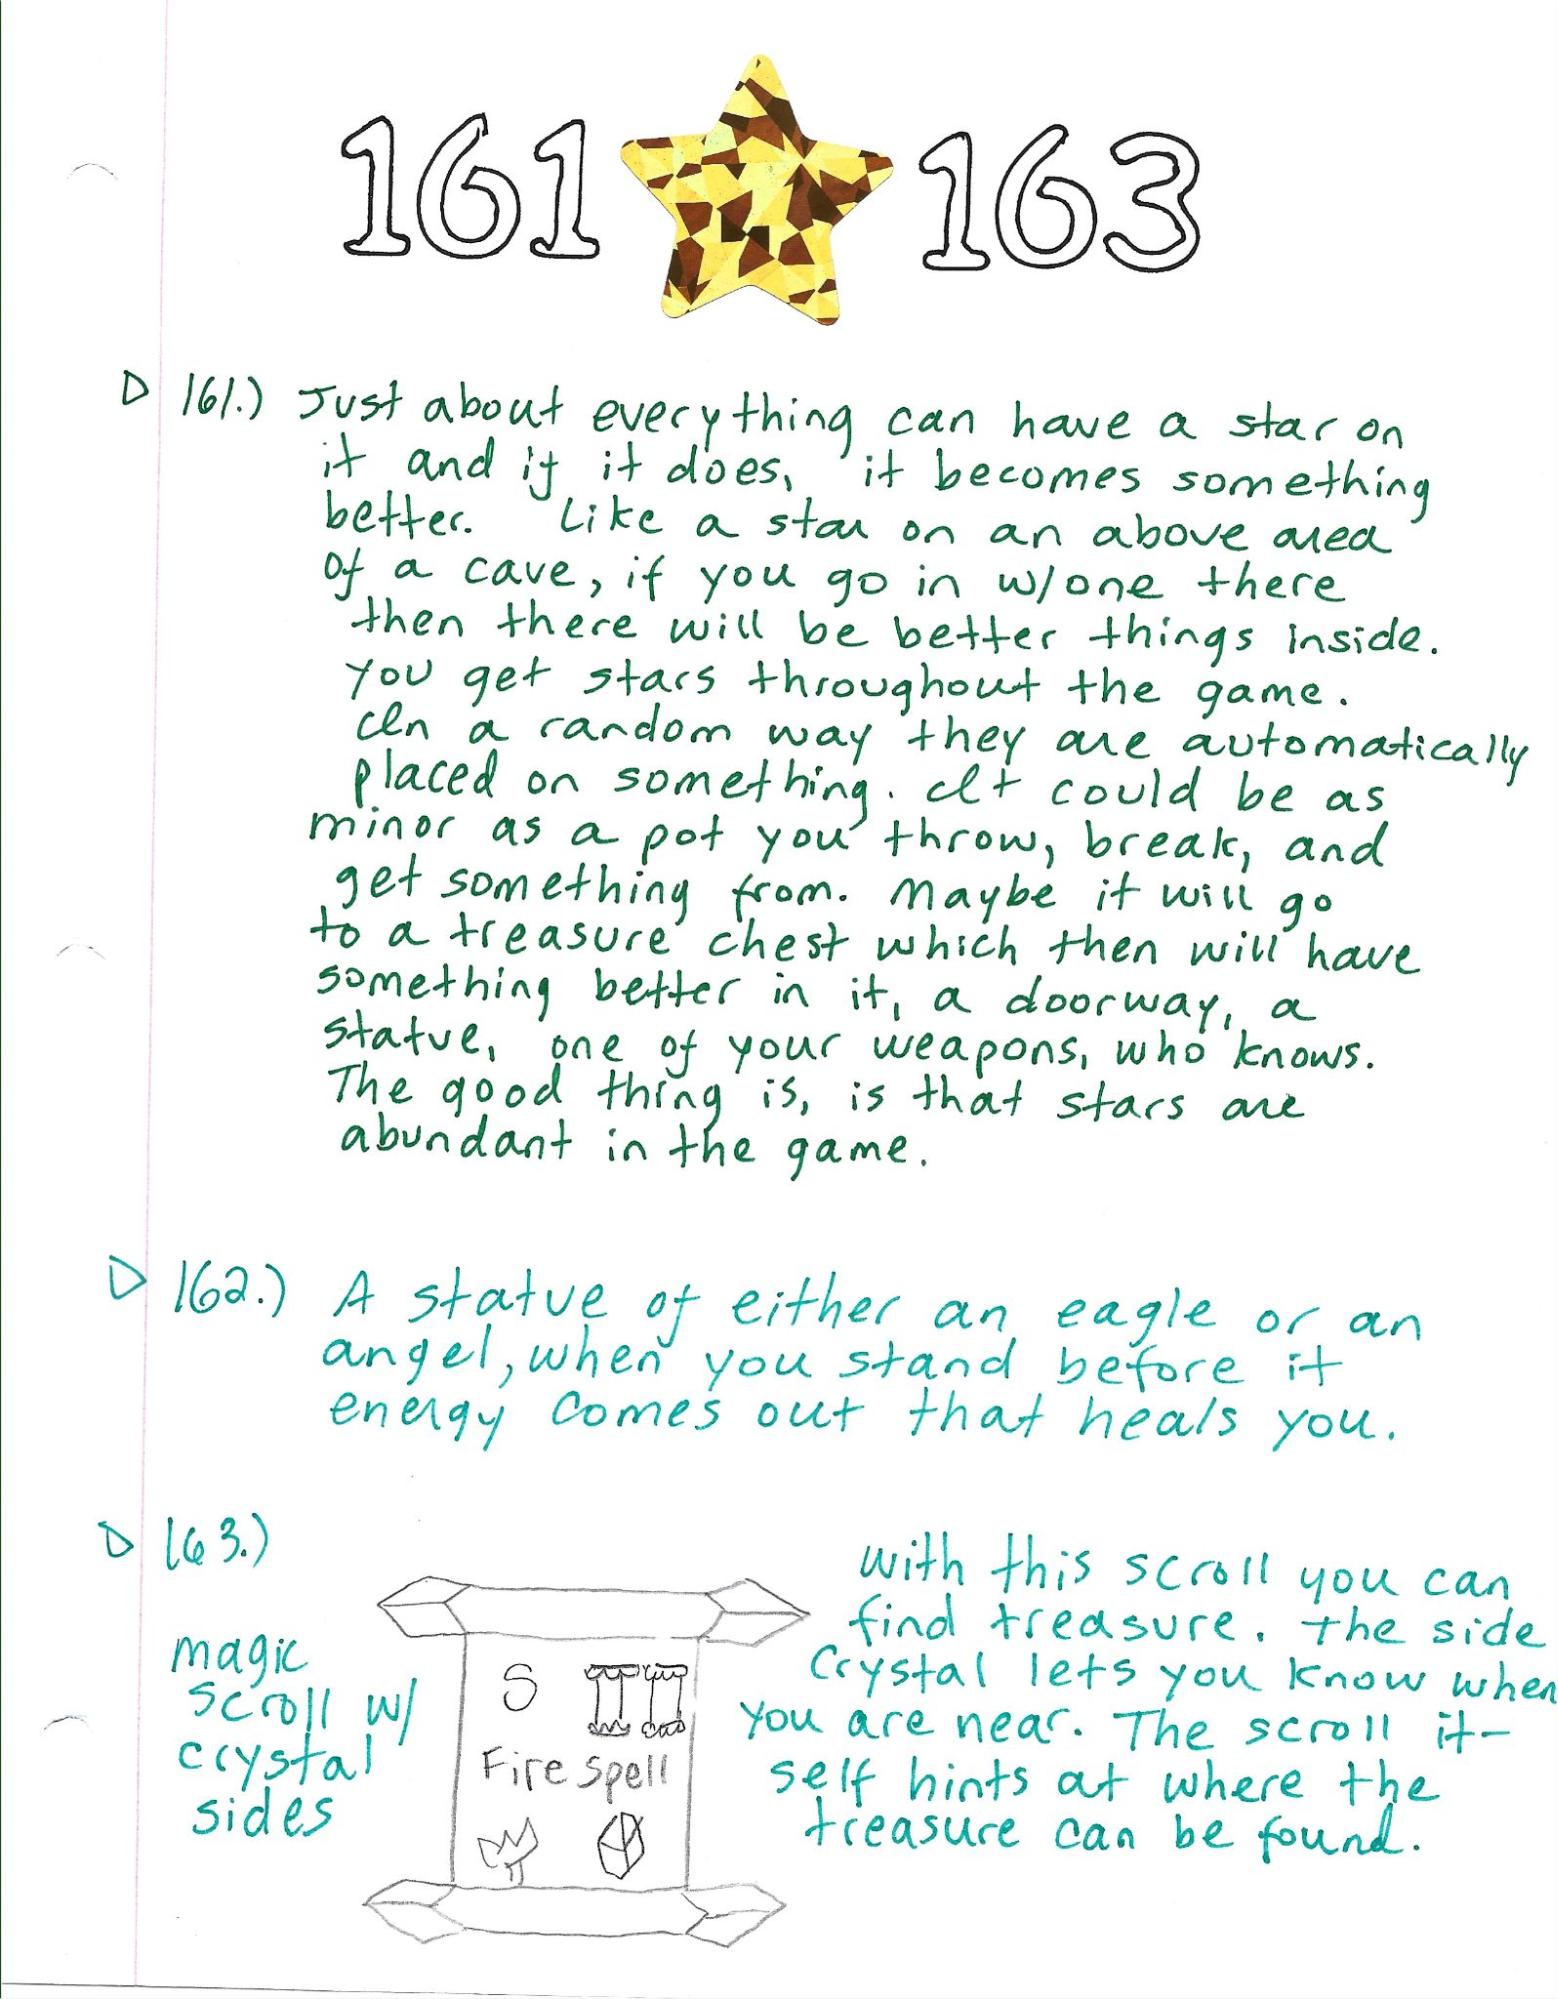 161 163
161.) Just about everything can have a star on
it and if it does, it becomes something
better. Like a star on an above area
of a cave, if you go in w/one there
then there will be better things inside.
You get stars throughout the game.
In a random way they are automatically
placed on something. It could be as
minor as a pot you throw, break, and
get something from. Maybe it will go
to a treasure chest which then will have
something better in it, a doorway, a
statue, one of your weapons, who knows.
The good thing is, is that stars are
abundant in the game.
162.) A statue of either an eagle or an
angel, when you stand before it
energy comes out that heals you.
163.)
magic
scroll w/
crystal
sides
S
Fire Spell
with this scroll you can
find treasure. The side
Crystal lets you know when
you are near. The scroll it-
self hints at where the
treasure can be found.